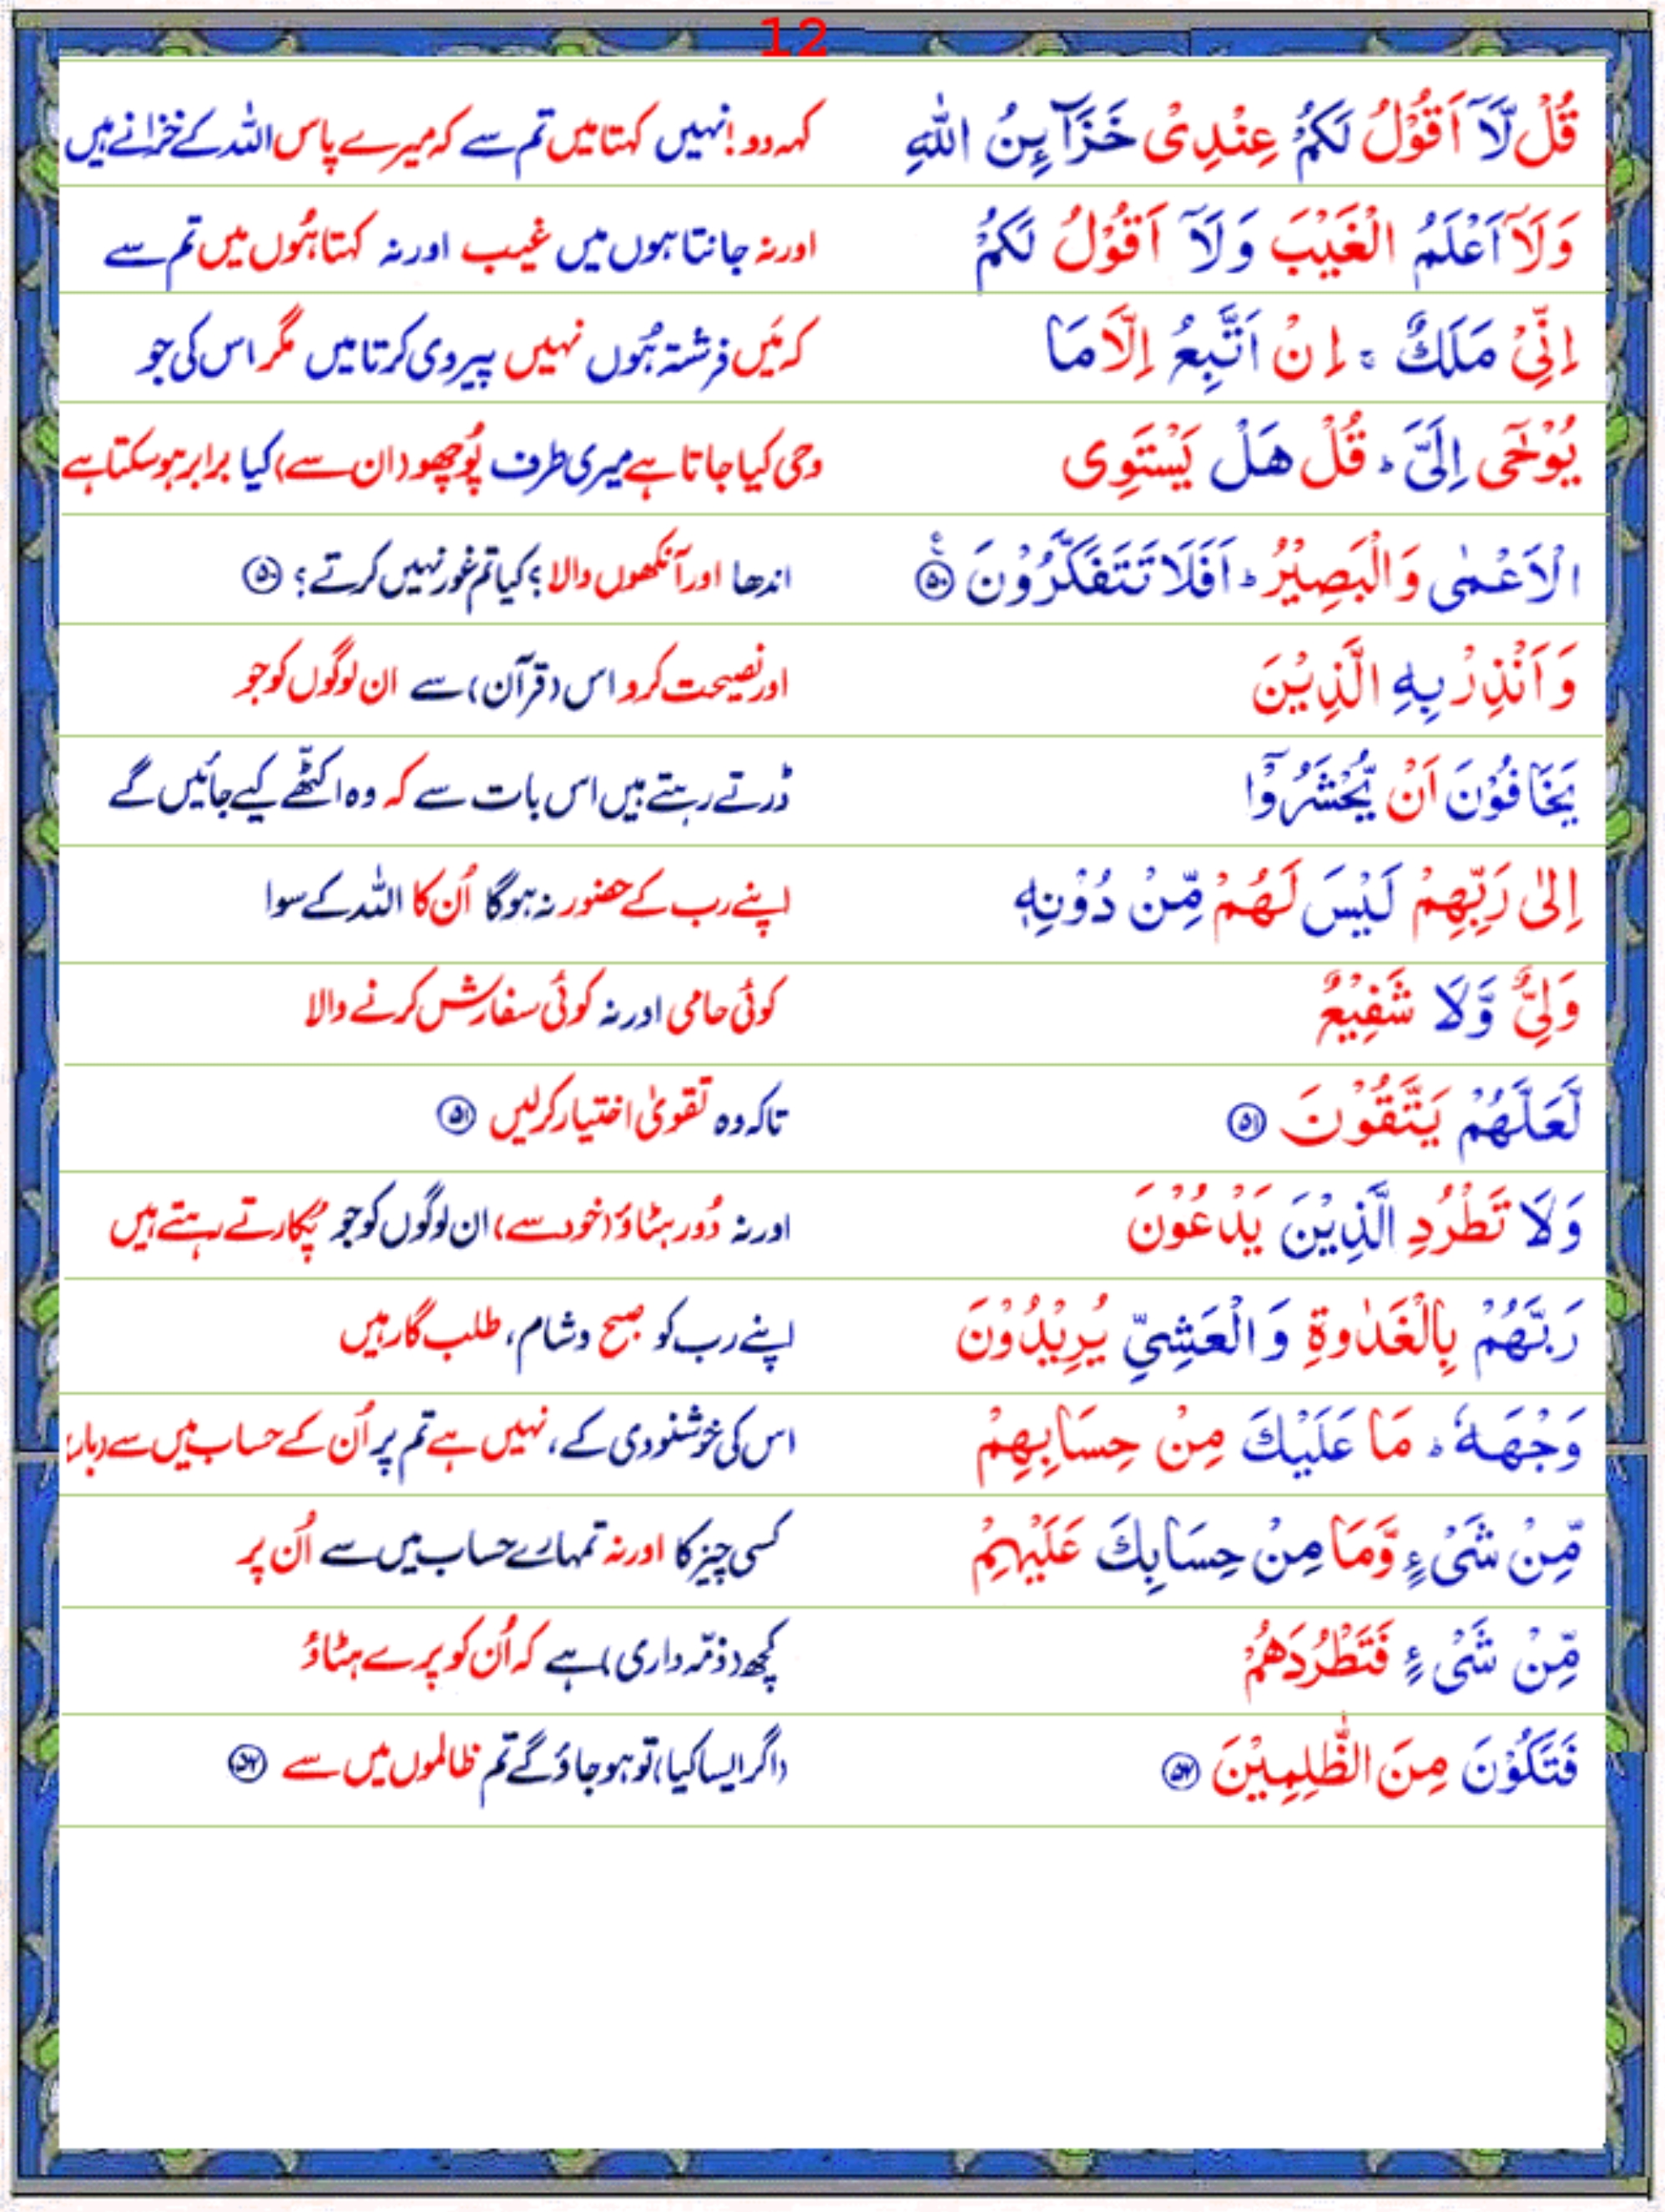 12
قُلْ لَّآ اَقُوْلُ لَكُمْ عِنْدِیْ خَزَآئِنُ اللّٰهِ کہہ دو! نہیں کہتا میں تم سے کہ میرے پاس اللہ کے خزانے ہیں
وَلَآ اَعْلَمُ الْغَيْبَ وَلَآ اَقُوْلُ لَكُمْ اور نہ جانتا ہوں میں غیب اور نہ کہتا ہُوں میں تم سے
اِنِّیْ مَلَكٌ ۚ اِنْ اَتَّبِعُ اِلَّا مَا کہ مَیں فرشتہ ہُوں نہیں پیروی کرتا میں مگر اس کی جو
يُوْحٰٓی اِلَیَّ ؕ قُلْ هَلْ يَسْتَوِی وحی کیا جاتا ہے میری طرف پُوچھو (ان سے) کیا برابر ہوسکتا ہے
الْاَعْمٰی وَالْبَصِيْرُ ؕ اَفَلَا تَتَفَكَّرُوْنَ ۵۰ اندھا اور آنکھوں والا ؟ کیا تم غور نہیں کرتے ؟ ۵۰
وَاَنْذِرْ بِهِ الَّذِيْنَ اور نصیحت کرو اس (قرآن) سے ان لوگوں کو جو
يَخَافُوْنَ اَنْ يُّحْشَرُوْٓا ڈرتے رہتے ہیں اس بات سے کہ وہ اکٹھّے کیے جائیں گے
اِلٰی رَبِّهِمْ لَيْسَ لَهُمْ مِّنْ دُوْنِهٖ اپنے رب کے حضور نہ ہوگا اُن کا اللہ کے سوا
وَلِیٌّ وَّلَا شَفِيْعٌ کوئی حامی اور نہ کوئی سفارش کرنے والا
لَّعَلَّهُمْ يَتَّقُوْنَ ۵۱ تاکہ وہ تقویٰ اختیار کرلیں ۵۱
وَلَا تَطْرُدِ الَّذِيْنَ يَدْعُوْنَ اور نہ دُور ہٹاؤ (خود سے) ان لوگوں کو جو پُکارتے رہتے ہیں
رَبَّهُمْ بِالْغَدٰوةِ وَالْعَشِیِّ يُرِيْدُوْنَ اپنے رب کو صبح وشام، طلب گار ہیں
وَجْهَهٗ ؕ مَا عَلَيْكَ مِنْ حِسَابِهِمْ اس کی خوشنودی کے، نہیں ہے تم پر اُن کے حساب میں سے (بار)
مِّنْ شَیْءٍ وَّمَا مِنْ حِسَابِكَ عَلَيْهِمْ کسی چیز کا اور نہ تمہارے حساب میں سے اُن پر
مِّنْ شَیْءٍ فَتَطْرُدَهُمْ کچھ (ذمّہ داری) ہے کہ اُن کو پرے ہٹاؤ
فَتَكُوْنَ مِنَ الظّٰلِمِيْنَ ۵۲ (اگر ایسا کیا) تو ہو جاؤ گے تم ظالموں میں سے ۵۲